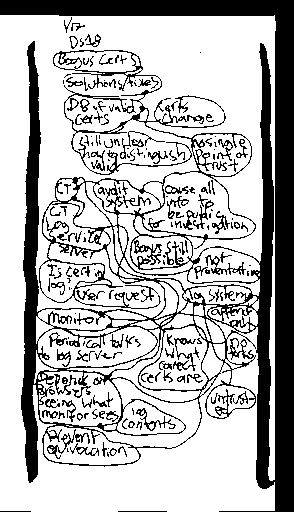 Bogus Certs
Solutions/fixes
DB of valid
certs
certs
change
still unclear
how to distinguish
valid
no single
point of
trust
CT
audit
system
cause all
info to
be public
for investigation
CT
log
service
server
Bogus still
possible
not
preventative
Is cert in
log?
user request
log system
append
only
monitor
Periodically talks
to log server
knows
what
correct
certs are
Depends on
browsers
seeing what
monitor sees
log
contents
untrust-
ed
Prevent
equivocation